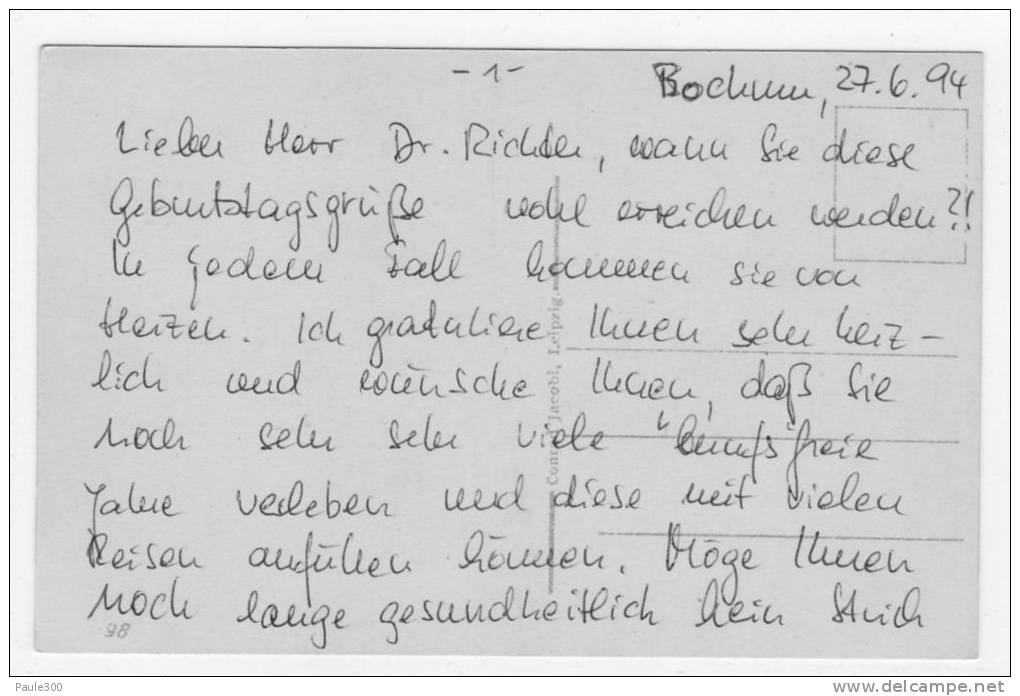 -1-
Bochum, 27.6.94
Lieber Herr Dr. Richter, wann Sie diese
Geburtstagsgrüße wohl erreichen werden?!
In jedem Fall kommen sie von
Herzen. Ich gratuliere Ihnen sehr herz-
lich und wünsche Ihnen, daß Sie
noch sehr sehr viele "berufsfreie
Jahre verleben und diese mit vielen
Reisen anfüllen können. Möge Ihnen
noch lange gesundheitlich kein Strich
98
Jacobi, Leipzig.
Paule300
www.delcampe.net